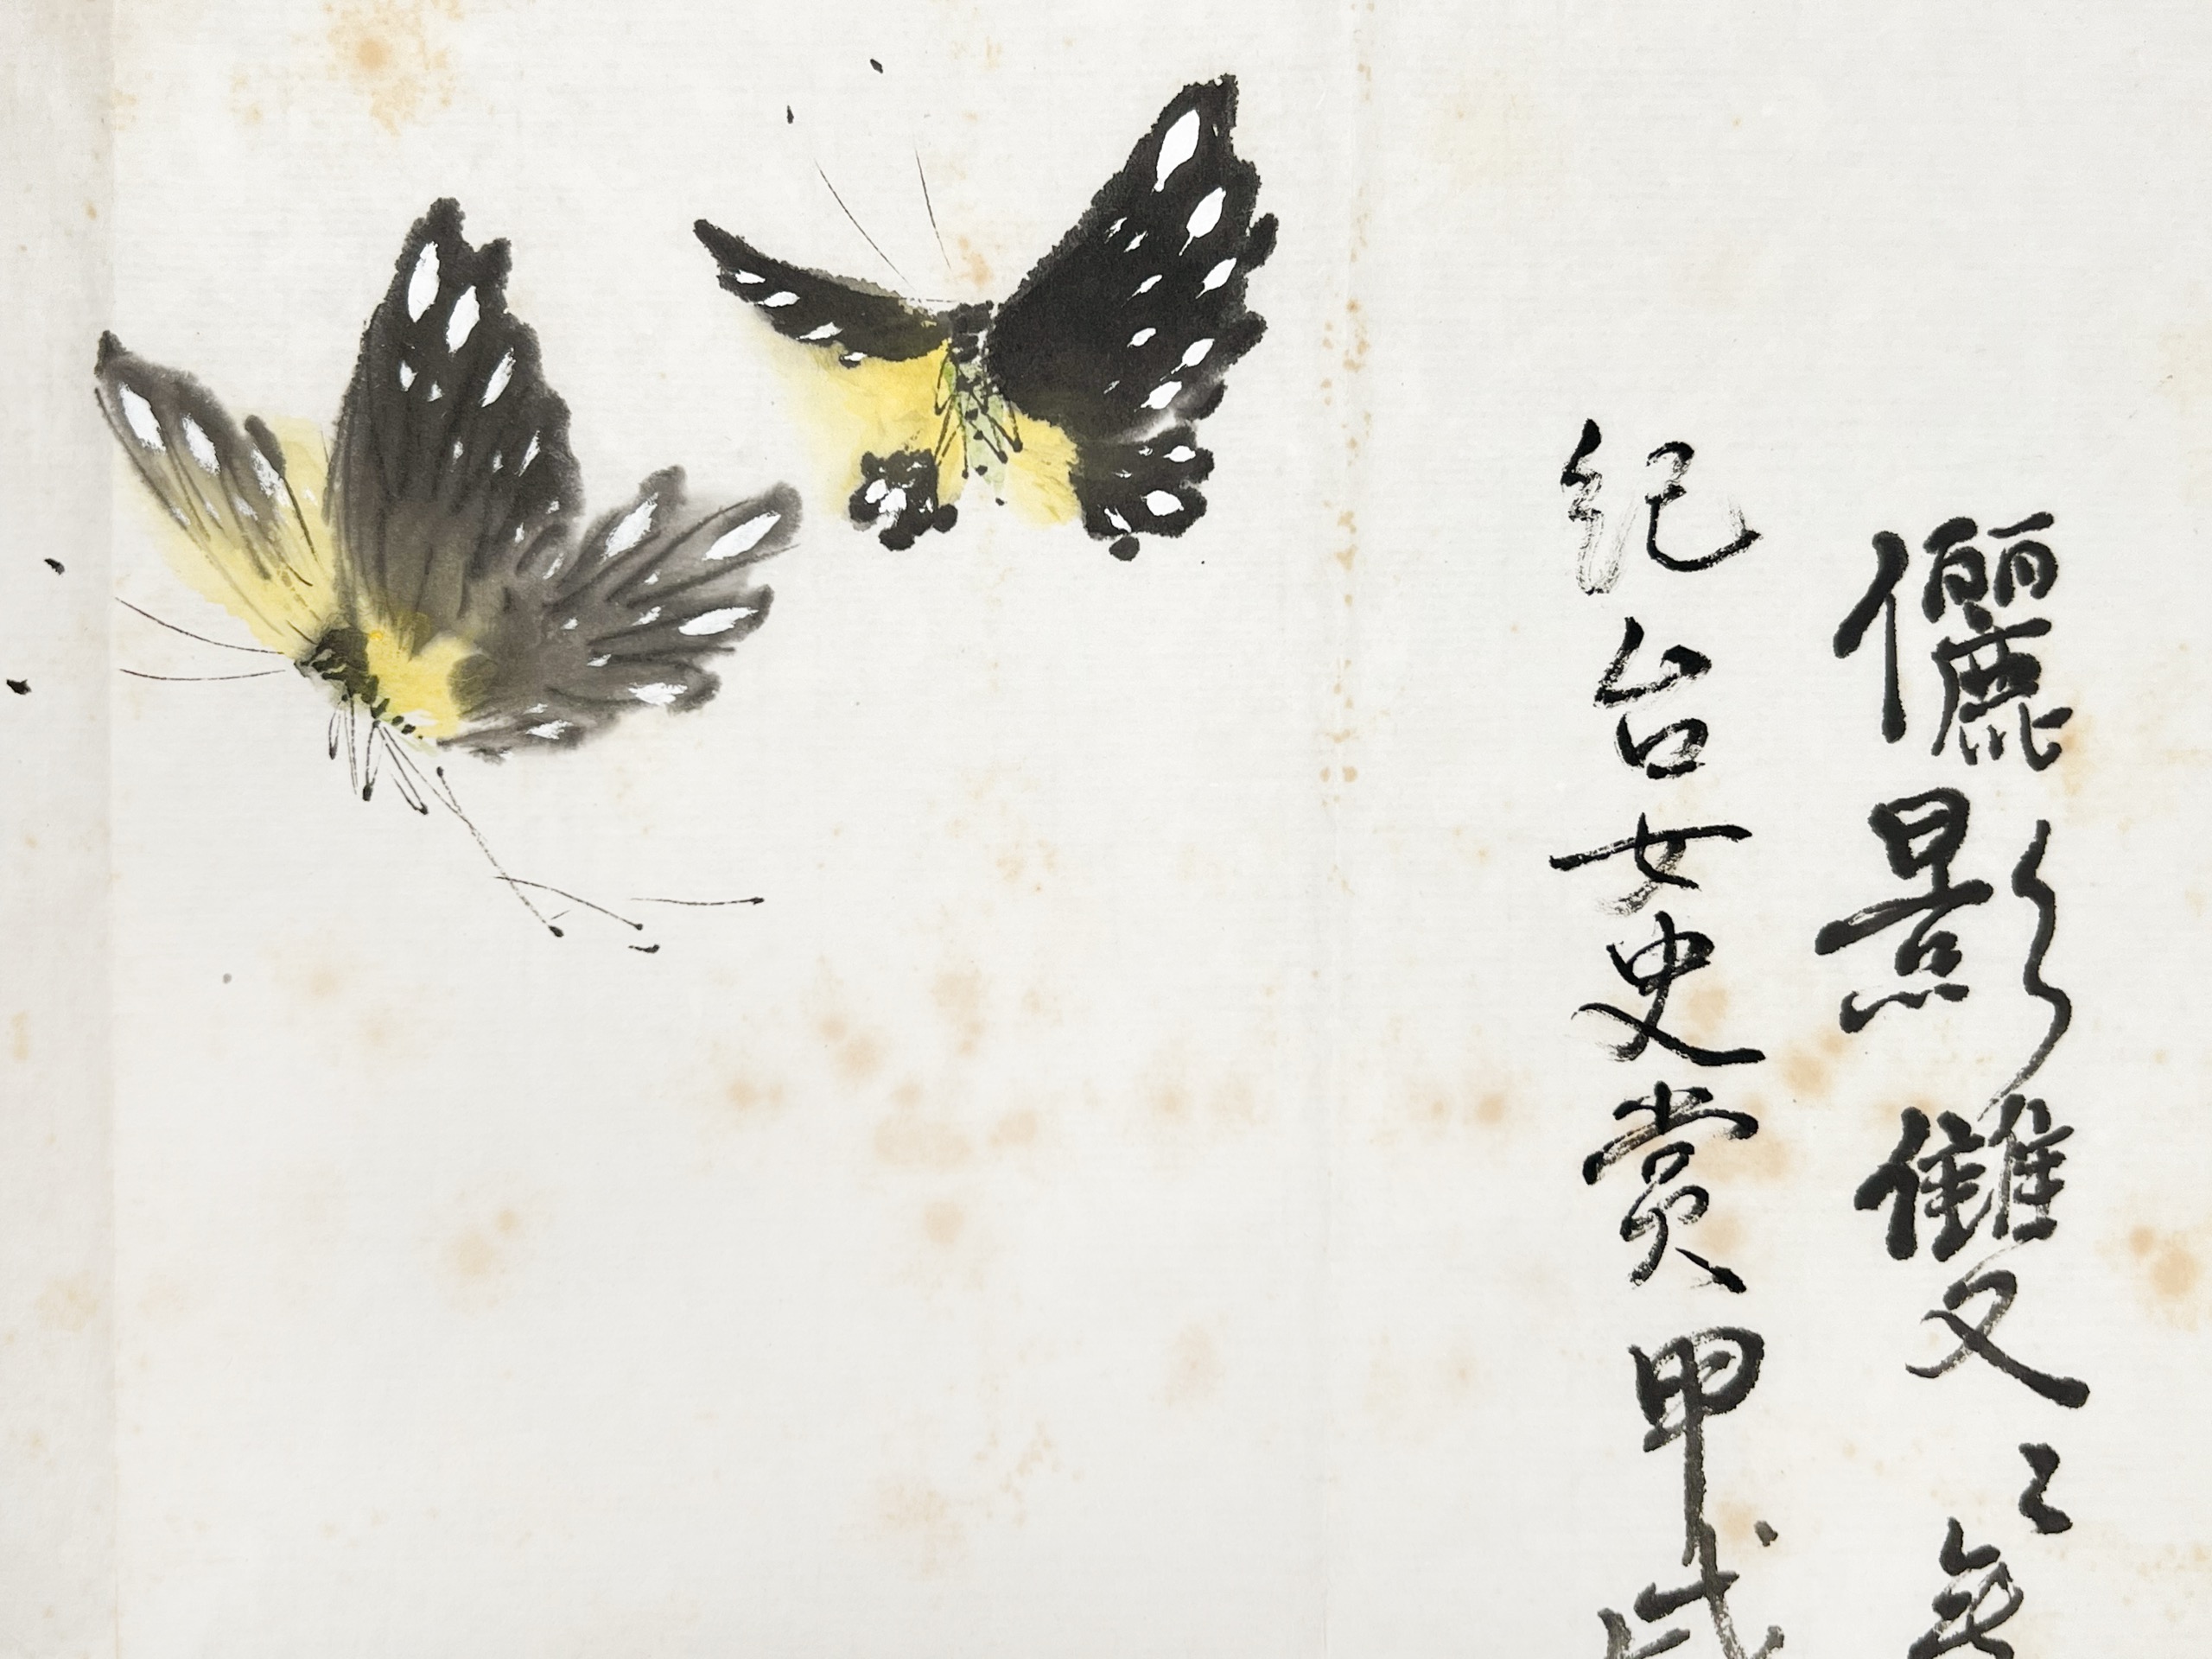 儷影雙〻
紀台女史賞甲戌